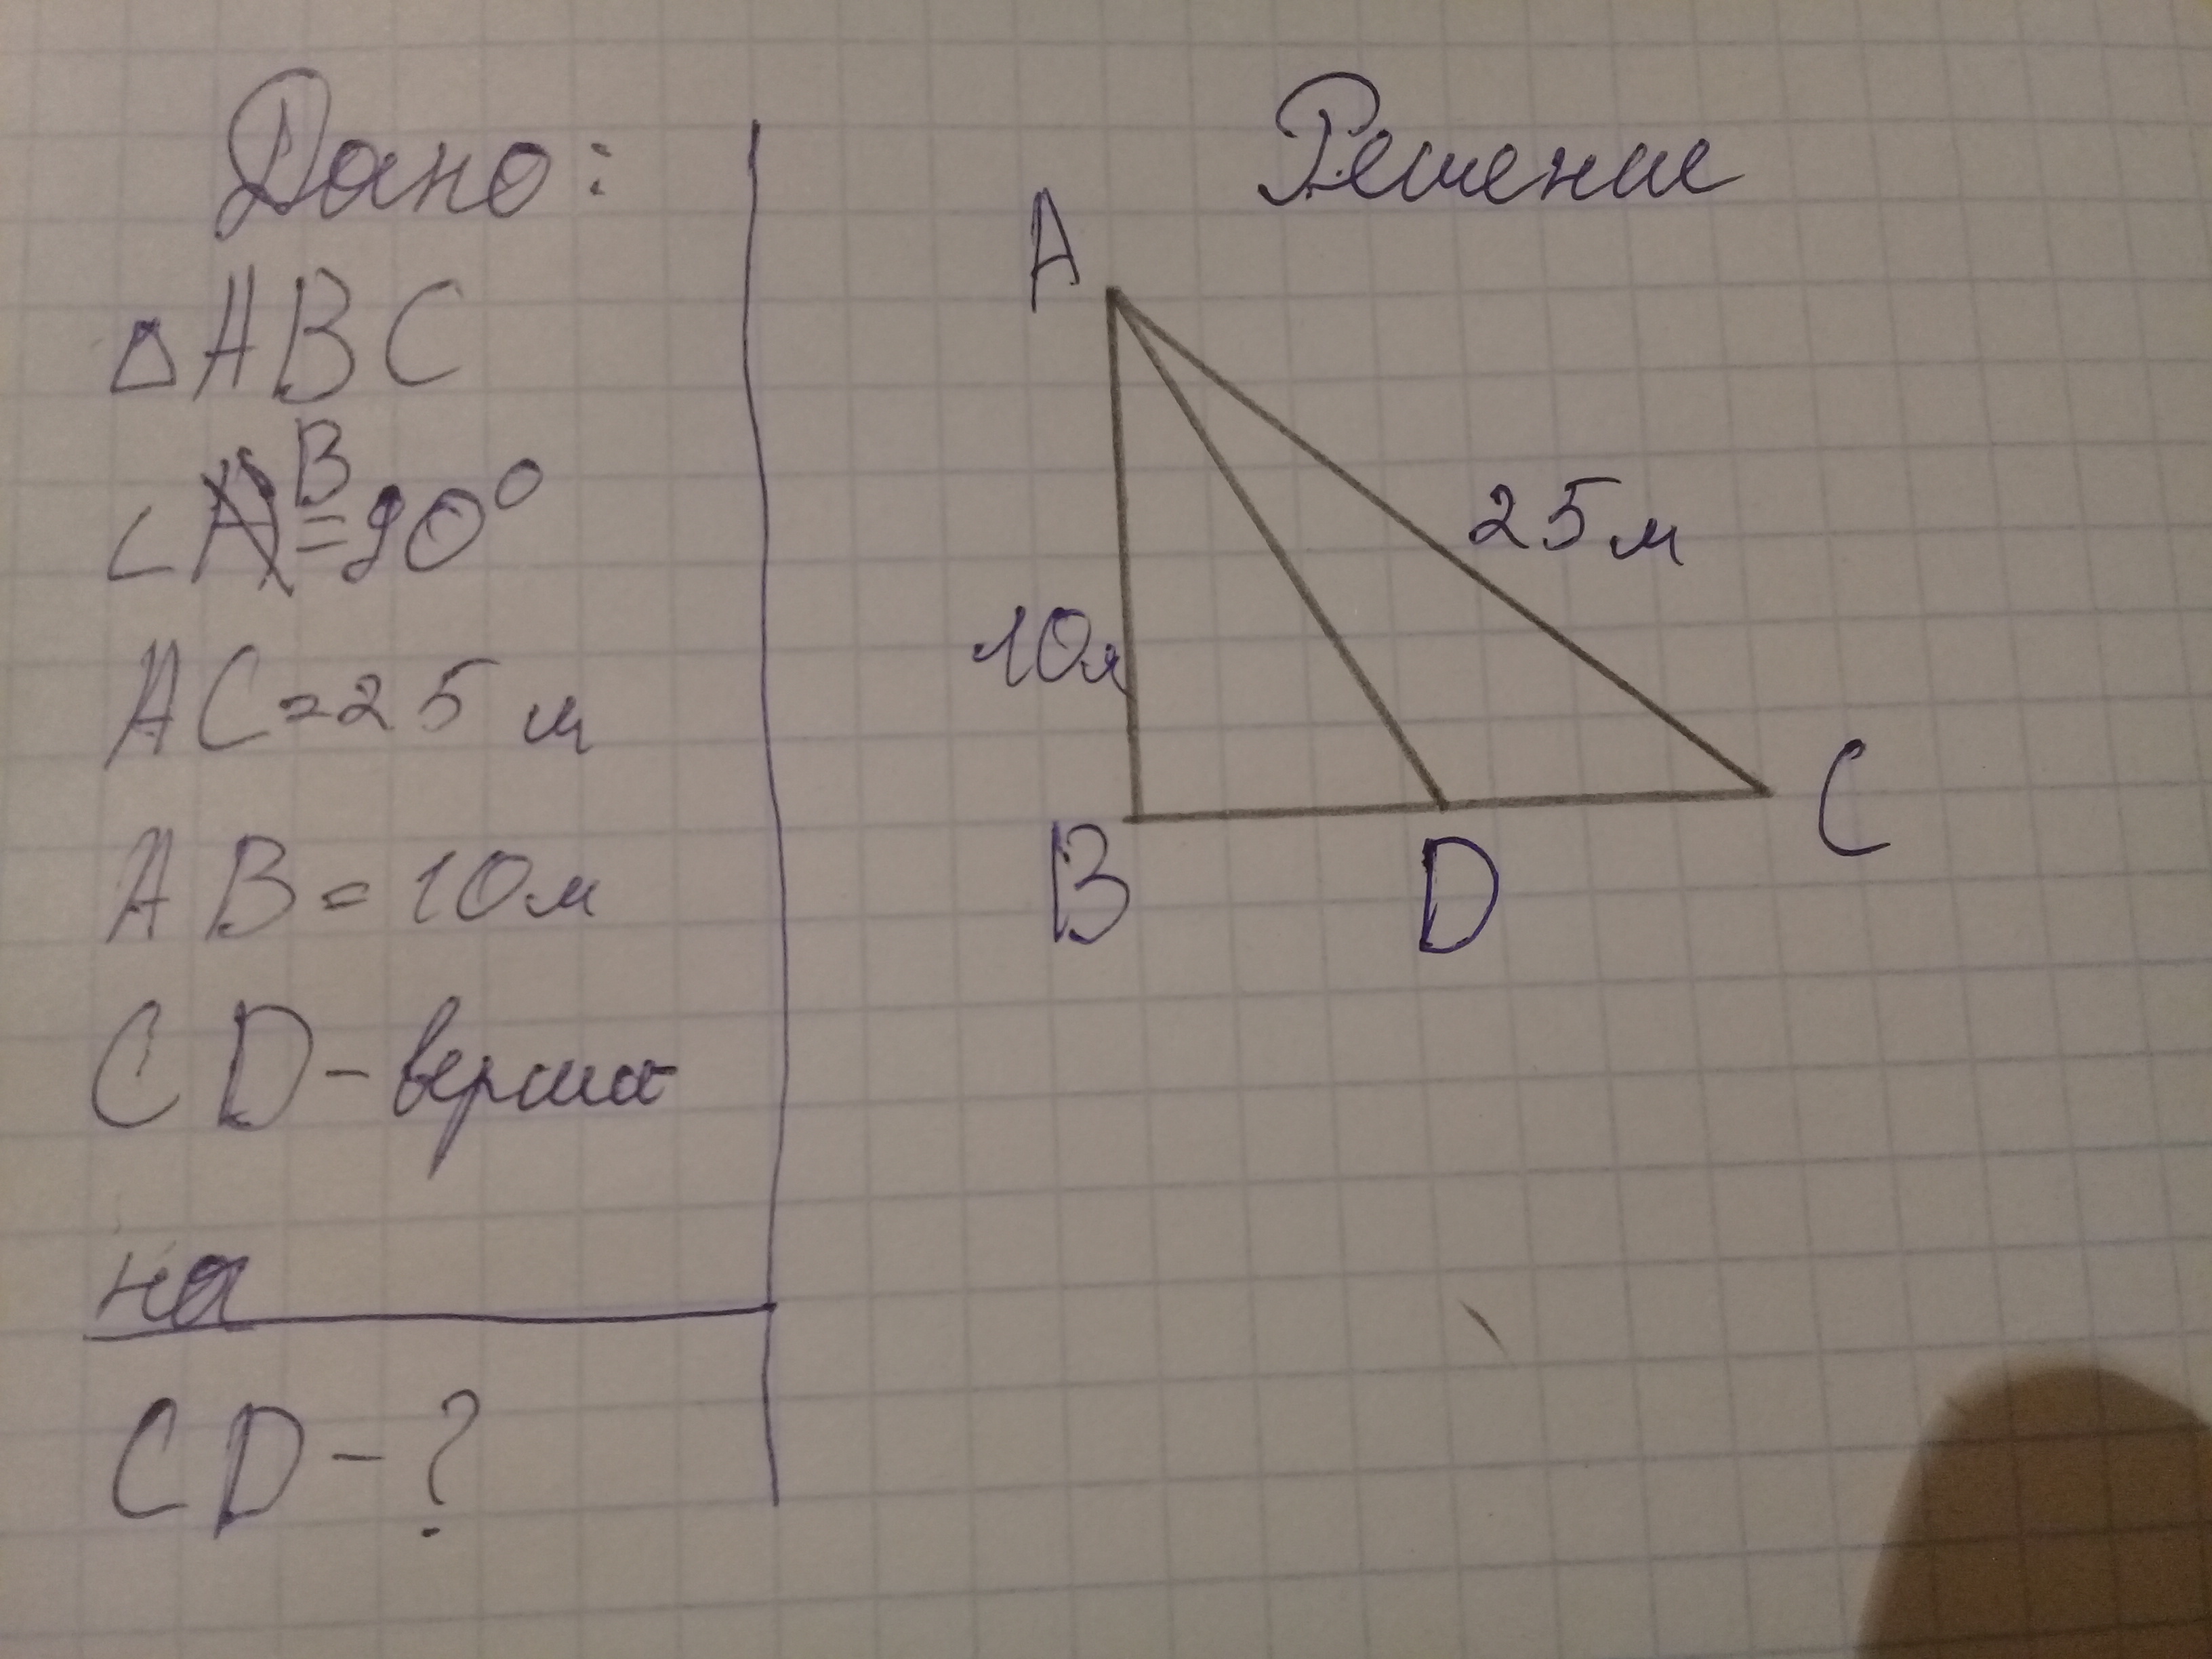 Дано:
△ABC
∠A B=90°
AC=25 м
AB=10м
CD-верши
на
CD-?
Решение
A
25м
10м
B
D
C